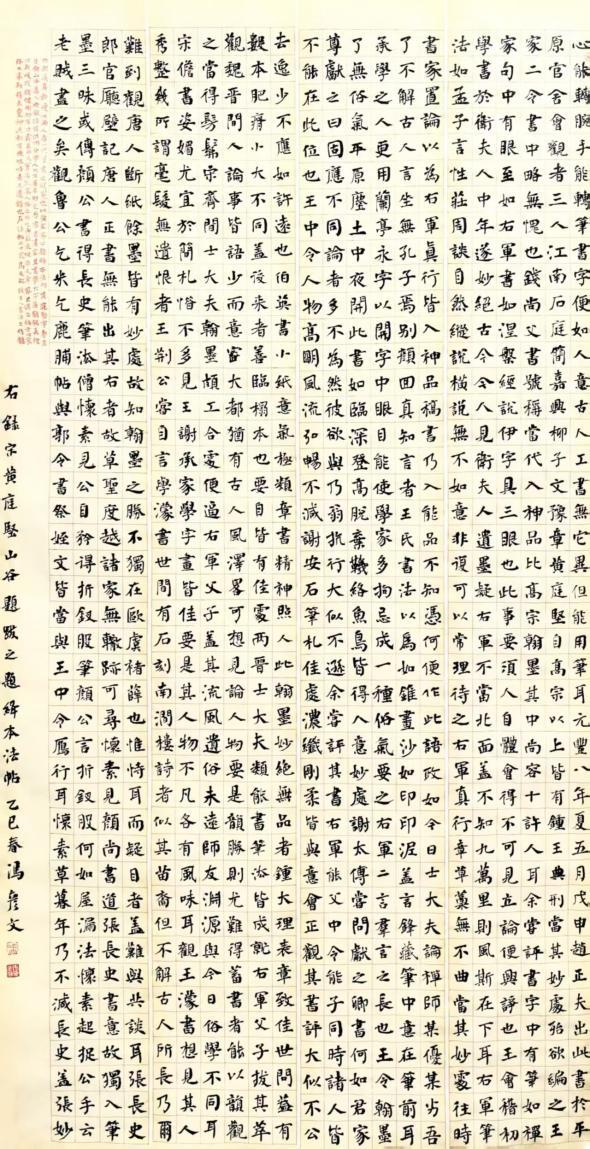 心能轉腕手能轉筆書字便如人意古人工書無它異但能用筆耳元豐八年夏五月戊申趙正夫出此書於平
原官舍會觀者三人江南石庭簡嘉興柳子文豫章黃庭堅高宗以上皆有王典刑其妙處殆欲編之王
家二令書中略無愧也錢尚父書號稱當代入神品比高宗翰墨其中尚容十許人耳余嘗評書字中有筆如禪
家句中有眼至如右軍書如涅槃經說伊字具三眼也此事要須人自體會得不可見立論便興諍也王會稽初
學書於衛夫人中年遂妙絕古今今人見衛夫人遺墨疑右軍不當北面蓋不知九萬里則風斯在下耳右軍筆
法如孟子言性莊周談自然縱說橫說無不如意非復可以常理待之右軍真行章草藁無不曲當其妙處往時
書家置論以為右軍真行皆入神品藁書乃入能品不知憑何便作此語政如今日士大夫論禪師某優某劣吾
了不解古人言坐無孔子焉別顏回真知言者王氏書法以為如錐畫沙如印印泥蓋言鋒藏筆中意在筆前耳
承學之人更用蘭亭永字以開字中眼目能使學家多拘忌成一種俗氣要之右軍二言群言之長也王令翰墨
了無俗氣平中夜開此書如臨深登高脫棄羈絡魚鳥皆得人意妙處謝太傅嘗問獻之卿書何如君家
尊獻之曰固應不同論者多不為然彼欲與乃翁抗行大似不遜余嘗評其書右軍能父中令能子同時諸人皆
不能在此位也王中令人物高明風流弘暢不減謝安石筆札佳處濃纖剛柔皆與意會正觀其書評大似不公
去逸少不應如許遠也伯英書小紙意氣極類章書精神照人此翰墨妙絕無品者鍾大理表章致佳世間蓋有
數本肥瘠小大不同蓋後來善臨搨本也要自皆有佳處兩晉士大夫類能書筆法皆成就右軍父子拔其萃
觀魏晉間人論事皆語少而意密大都猶有古人風澤畧可想見論人物要是韻勝則尤難得蓄書者能以韻觀
之當得髣髴宋齊間士大夫翰墨頗工合處便逼右軍父子蓋其流風遺俗未遠師友淵源與今日俗學不同耳
宋儋書姿媚尤宜於簡札惜不多見王謝承家學字畫皆佳要是其人物不凡各有風味耳觀王濛書想見其人
秀整幾所謂毫髮無遺恨者王荊公嘗自言學濛書世間有石刻南澗樓詩者似其苗裔但不解古人所長乃爾
難到觀唐人斷紙餘墨皆有妙處故知翰墨之勝不獨在歐虞褚薛也惟恃耳而疑目者蓋難與共談耳張長史
郎官廳壁記唐人正書無能出其右者故草聖度越諸家無轍跡可尋懷素見顏尚書道張長史書意故獨入筆
墨三昧或傳顏公書得長史筆法僧懷素見公自矜得折釵股筆顏公言折釵股何如屋漏法懷素起捉公手云
老賊盡之矣觀魯公乞米乞鹿脯帖與郭令書祭姪文皆當與王中令雁行耳懷素草暮年乃不減長史蓋張妙
右錄宋黃庭堅山谷題跋之題絳本法帖乙巳春馮彥文